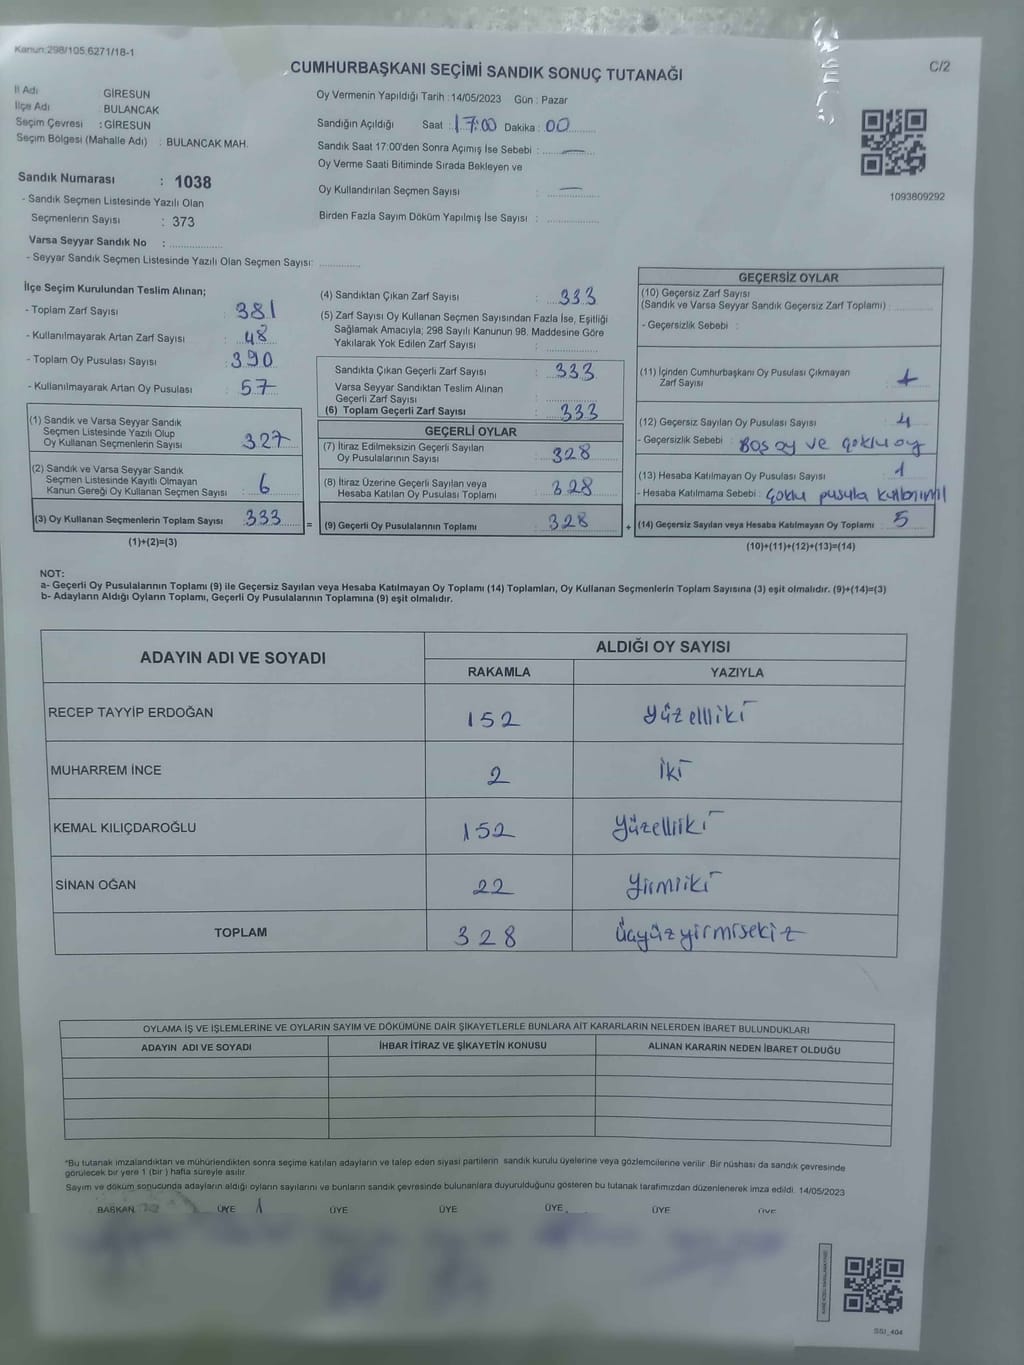 Kanun:298/105.6271/18-1
CUMHURBAŞKANI SEÇİMİ SANDIK SONUÇ TUTANAĞI
C/2
İl Adı GİRESUN
İlçe Adı BULANCAK
Seçim Çevresi : GİRESUN
Seçim Bölgesi (Mahalle Adı) : BULANCAK MAH.
Sandık Numarası : 1038
- Sandık Seçmen Listesinde Yazılı Olan
Seçmenlerin Sayısı : 373
Varsa Seyyar Sandık No :
- Seyyar Sandık Seçmen Listesinde Yazılı Olan Seçmen Sayısı:
Oy Vermenin Yapıldığı Tarih :14/05/2023 Gün : Pazar
Sandığın Açıldığı Saat : 17:00 Dakika : 00
Sandık Saat 17:00'den Sonra Açımış İse Sebebi : —
Oy Verme Saati Bitiminde Sırada Bekleyen ve
Oy Kullandırılan Seçmen Sayısı : —
Birden Fazla Sayım Döküm Yapılmış İse Sayısı :
1093809292
İlçe Seçim Kurulundan Teslim Alınan;
- Toplam Zarf Sayısı : 381
- Kullanılmayarak Artan Zarf Sayısı : 48
- Toplam Oy Pusulası Sayısı : 390
- Kullanılmayarak Artan Oy Pusulası : 57
(1) Sandık ve Varsa Seyyar Sandık
Seçmen Listesinde Yazılı Olup
Oy Kullanan Seçmenlerin Sayısı : 327
(2) Sandık ve Varsa Seyyar Sandık
Seçmen Listesinde Kayıtlı Olmayan
Kanun Gereği Oy Kullanan Seçmen Sayısı : 6
(3) Oy Kullanan Seçmenlerin Toplam Sayısı : 333
(1)+(2)=(3)
=
(4) Sandıktan Çıkan Zarf Sayısı : 333
(5) Zarf Sayısı Oy Kullanan Seçmen Sayısından Fazla İse, Eşitliği
Sağlamak Amacıyla; 298 Sayılı Kanunun 98. Maddesine Göre
Yakılarak Yok Edilen Zarf Sayısı :
Sandıkta Çıkan Geçerli Zarf Sayısı : 333
Varsa Seyyar Sandıktan Teslim Alınan
Geçerli Zarf Sayısı :
(6) Toplam Geçerli Zarf Sayısı : 333
GEÇERLİ OYLAR
(7) İtiraz Edilmeksizin Geçerli Sayılan
Oy Pusulalarının Sayısı : 328
(8) İtiraz Üzerine Geçerli Sayılan veya
Hesaba Katılan Oy Pusulası Toplamı : 328
(9) Geçerli Oy Pusulalarının Toplamı : 328
+
GEÇERSİZ OYLAR
(10) Geçersiz Zarf Sayısı
(Sandık ve Varsa Seyyar Sandık Geçersiz Zarf Toplamı) :
- Geçersizlik Sebebi :
(11) İçinden Cumhurbaşkanı Oy Pusulası Çıkmayan
Zarf Sayısı :
(12) Geçersiz Sayılan Oy Pusulası Sayısı : 4
- Geçersizlik Sebebi : Boş oy ve çoklu oy
(13) Hesaba Katılmayan Oy Pusulası Sayısı : 1
- Hesaba Katılmama Sebebi : Çoklu pusula
(14) Geçersiz Sayılan veya Hesaba Katılmayan Oy Toplamı : 5
(10)+(11)+(12)+(13)=(14)
NOT:
a- Geçerli Oy Pusulalarının Toplamı (9) ile Geçersiz Sayılan veya Hesaba Katılmayan Oy Toplamı (14) Toplamları, Oy Kullanan Seçmenlerin Toplam Sayısına (3) eşit olmalıdır. (9)+(14)=(3)
b- Adayların Aldığı Oyların Toplamı, Geçerli Oy Pusulalarının Toplamına (9) eşit olmalıdır.
ADAYIN ADI VE SOYADI ALDIĞI OY SAYISI
RAKAMLA YAZIYLA
RECEP TAYYİP ERDOĞAN 152 yüzelliiki
MUHARREM İNCE 2 iki
KEMAL KILIÇDAROĞLU 152 yüzelliiki
SİNAN OĞAN 22 yirmiiki
TOPLAM 328 üçyüzyirmisekiz
OYLAMA İŞ VE İŞLEMLERİNE VE OYLARIN SAYIM VE DÖKÜMÜNE DAİR ŞİKAYETLERLE BUNLARA AİT KARARLARIN NELERDEN İBARET BULUNDUKLARI
ADAYIN ADI VE SOYADI İHBAR İTİRAZ VE ŞİKAYETİN KONUSU ALINAN KARARIN NEDEN İBARET OLDUĞU
*Bu tutanak imzalandıktan ve mühürlendikten sonra seçime katılan adayların ve talep eden siyasi partilerin sandık kurulu üyelerine veya gözlemcilerine verilir. Bir nüshası da sandık çevresinde
görülecek bir yere 1 (bir ) hafta süreyle asılır.
Sayım ve döküm sonucunda adayların aldığı oyların sayılarını ve bunların sandık çevresinde bulunanlara duyurulduğunu gösteren bu tutanak tarafımızdan düzenlenerek imza edildi. 14/05/2023
BAŞKAN ÜYE ÜYE ÜYE ÜYE ÜYE ÜYE
SSI_404